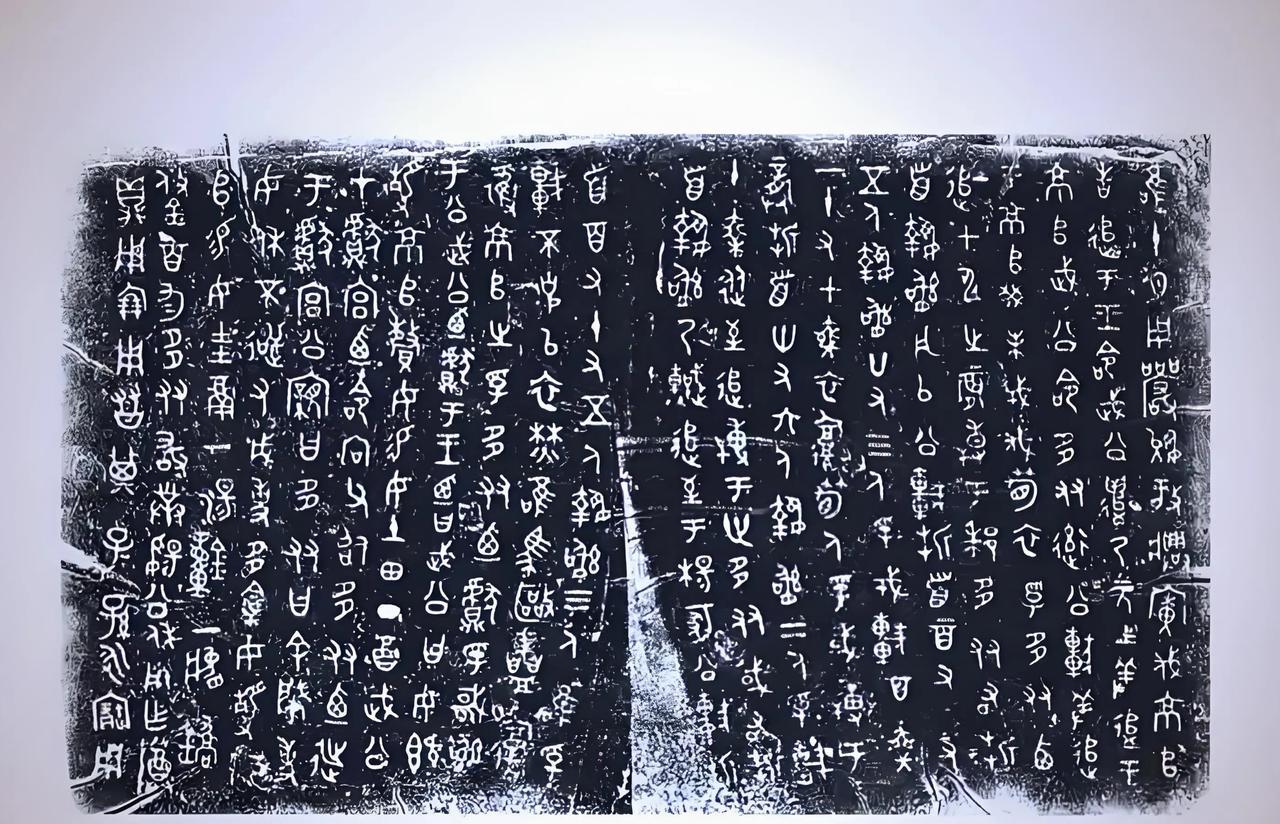 唯十月用玁狁放興廣伐京師
告追于王命武公遣乃元士羞追于
京師武公命多友率公車羞追
于京師癸未戎伐筍衣孚多友西
追甲申之辰搏于郗多友右折
首執訊凡以公車折首二百又又
五人執訊廿又三人孚戎車百乘
一十又七乘衣復筍人孚或搏于
龔折首卅又六人執訊二人孚車
十乘從至追搏于世多友或右折
首執訊乃軼追至于楊冢公車折
首百又十又五人執訊三人唯孚
車不克以衣焚唯馬驅盡復
奪京師之孚多友廼獻孚馘訊
于公武公廼獻于王廼曰武公曰女既
靜京師釐女易女土田丁酉武公
才獻宮廼命向父召多友廼
徙于獻宮公親曰多友曰余肇事
女休不逆又成事多禽女靜京
師易女圭瓚一湯鐘一肆鐈
鋚百勻多友敢對揚公休用乍尊
鼎用朋用友其子子孫永寶用